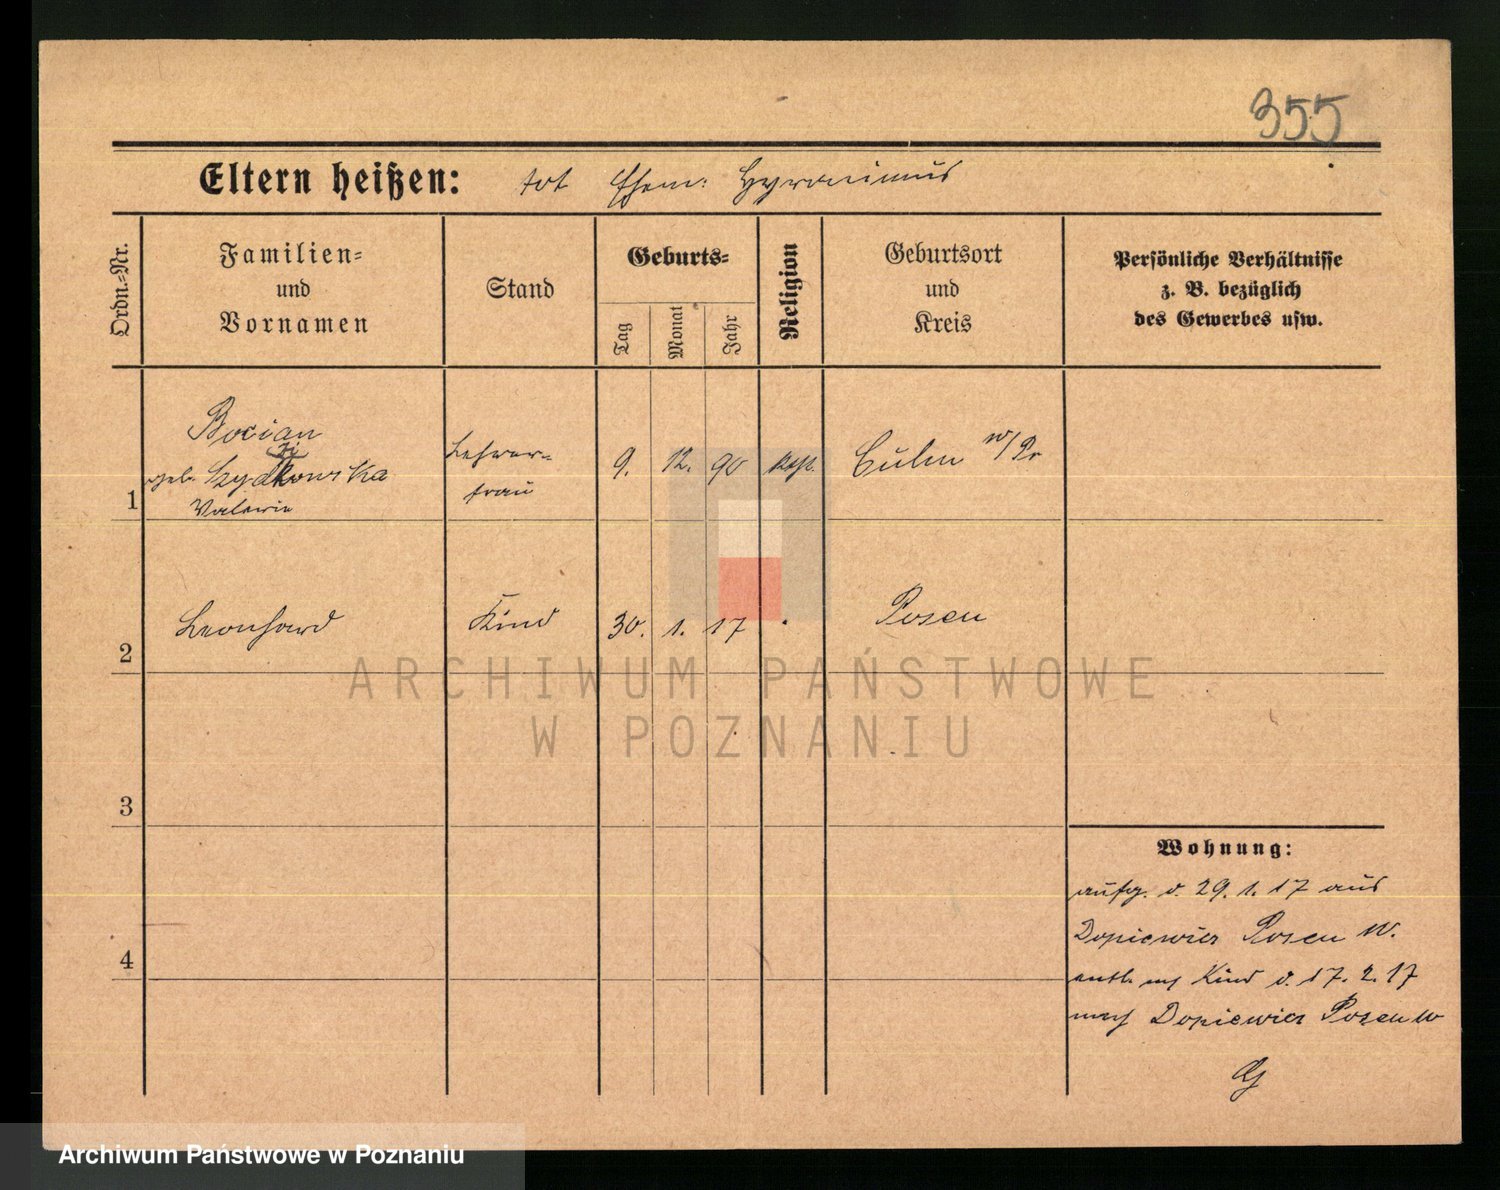 355
Eltern heißen: tot Ehem: Hyronimus
Ordn.-Nr.
Familien-
und
Vornamen
Stand
Geburts-
Tag
Monat
Jahr
Religion
Geburtsort
und
Kreis
Persönliche Verhältnisse
z. B. bezüglich
des Gewerbes usw.
1
Bocian
geb.
Valerie
Lehrer-
frau
9. 12. 90 kath.
Culm w/Pr
2
Leonhard
Kind
30. 1. 17
Posen
3
4
Wohnung:
aufg. v. 29. 1. 17 aus
Dopiewiec Posen W.
entl. m Kind d. 17. 2. 17
nach Dopiewiec Posen W
ARCHIWUM PAŃSTWOWE
W POZNANIU
Archiwum Państwowe w Poznaniu